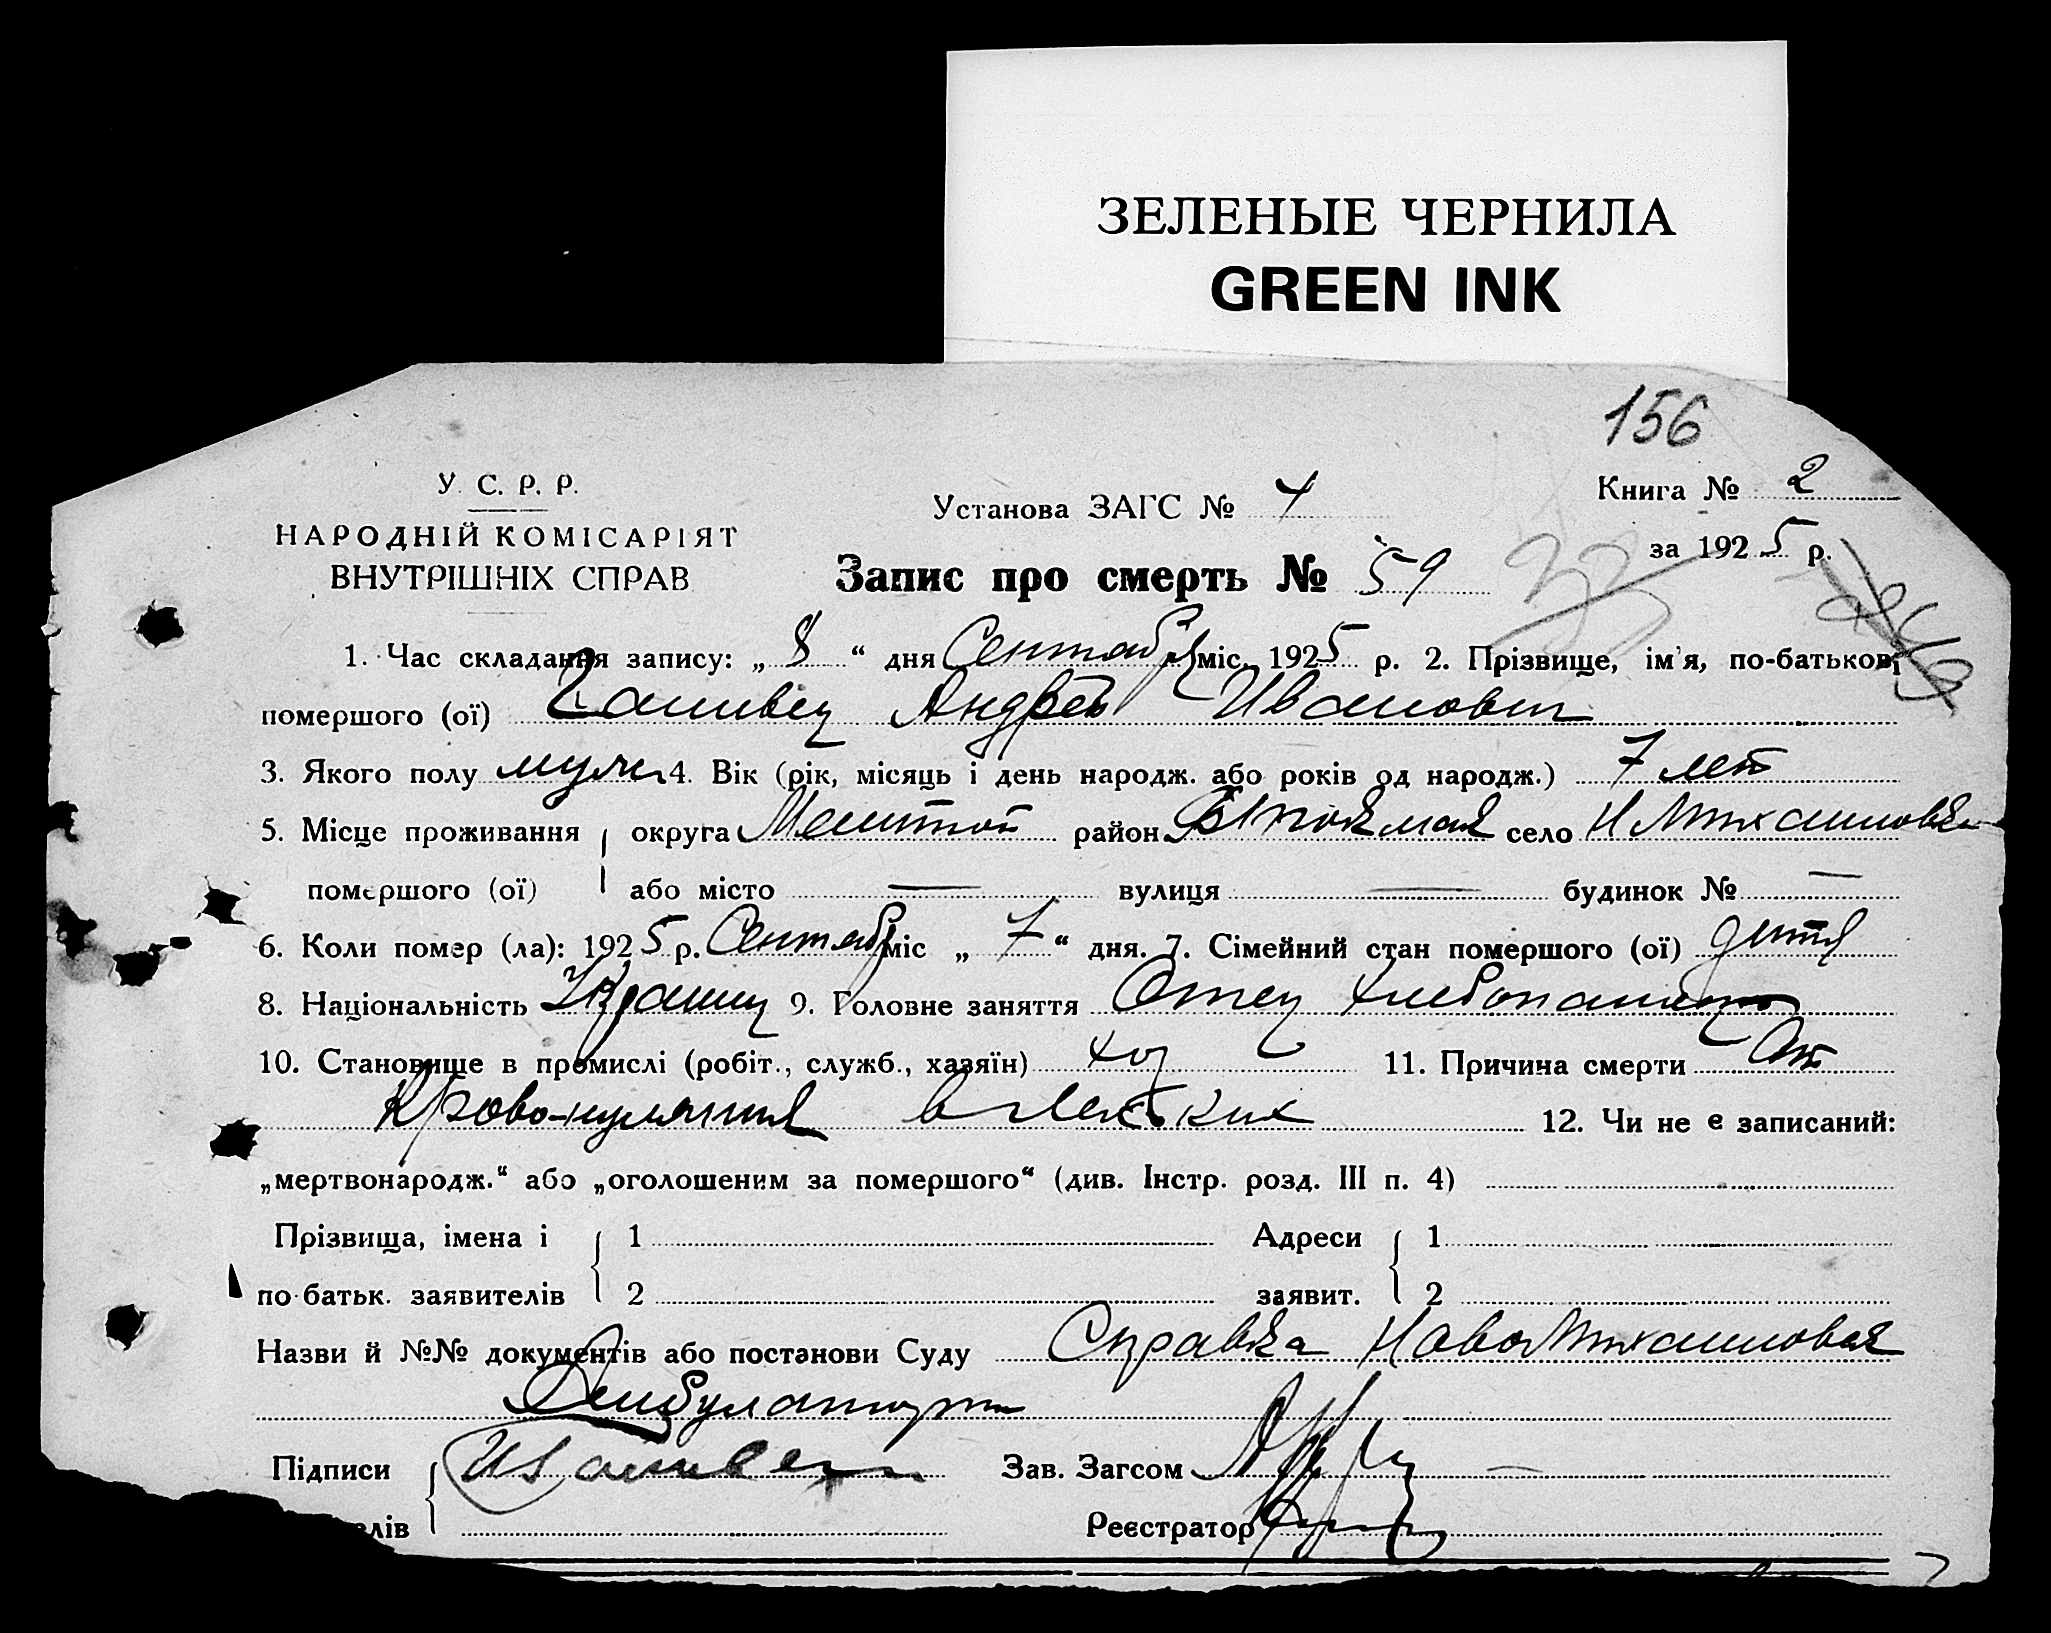 ЗЕЛЕНЫЕ ЧЕРНИЛА
GREEN INK
156
У. С. Р. Р.
НАРОДНІЙ КОМІСАРІЯТ
ВНУТРІШНІХ СПРАВ
Установа ЗАГС № 4
Книга № 2
за 1925 р.
Запис про смерть № 59
1. Час складання запису: „ 8 “ дня Сентября міс. 1925 р. 2. Прізвище, ім'я, по-батькові
помершого (ої) Андрей Иванович
3. Якого полу муж 4. Вік (рік, місяць і день народж. або років од народж.) 7 лет
5. Місце проживання округа район село Н Михайловка
помершого (ої) або місто — вулиця — будинок № —
6. Коли помер (ла): 1925 р. Сентяб міс „ 7 “ дня. 7. Сімейний стан помершого (ої) дитя
8. Національність Украин 9. Головне заняття Отец хлебопашец
10. Становище в промислі (робіт., служб., хазяїн) хоз 11. Причина смерти От
Крово-излияния в легких 12. Чи не є записаний:
„мертвонародж.“ або „оголошеним за помершого“ (див. Інстр. розд. III п. 4)
Прізвища, імена і 1 Адреси 1
по-батьк. заявителів 2 заявит. 2
Назви й №№ документів або постанови Суду Справка НовоМихайловск
Амбулатори
Підписи Зав. Загсом
лів Реєстратор